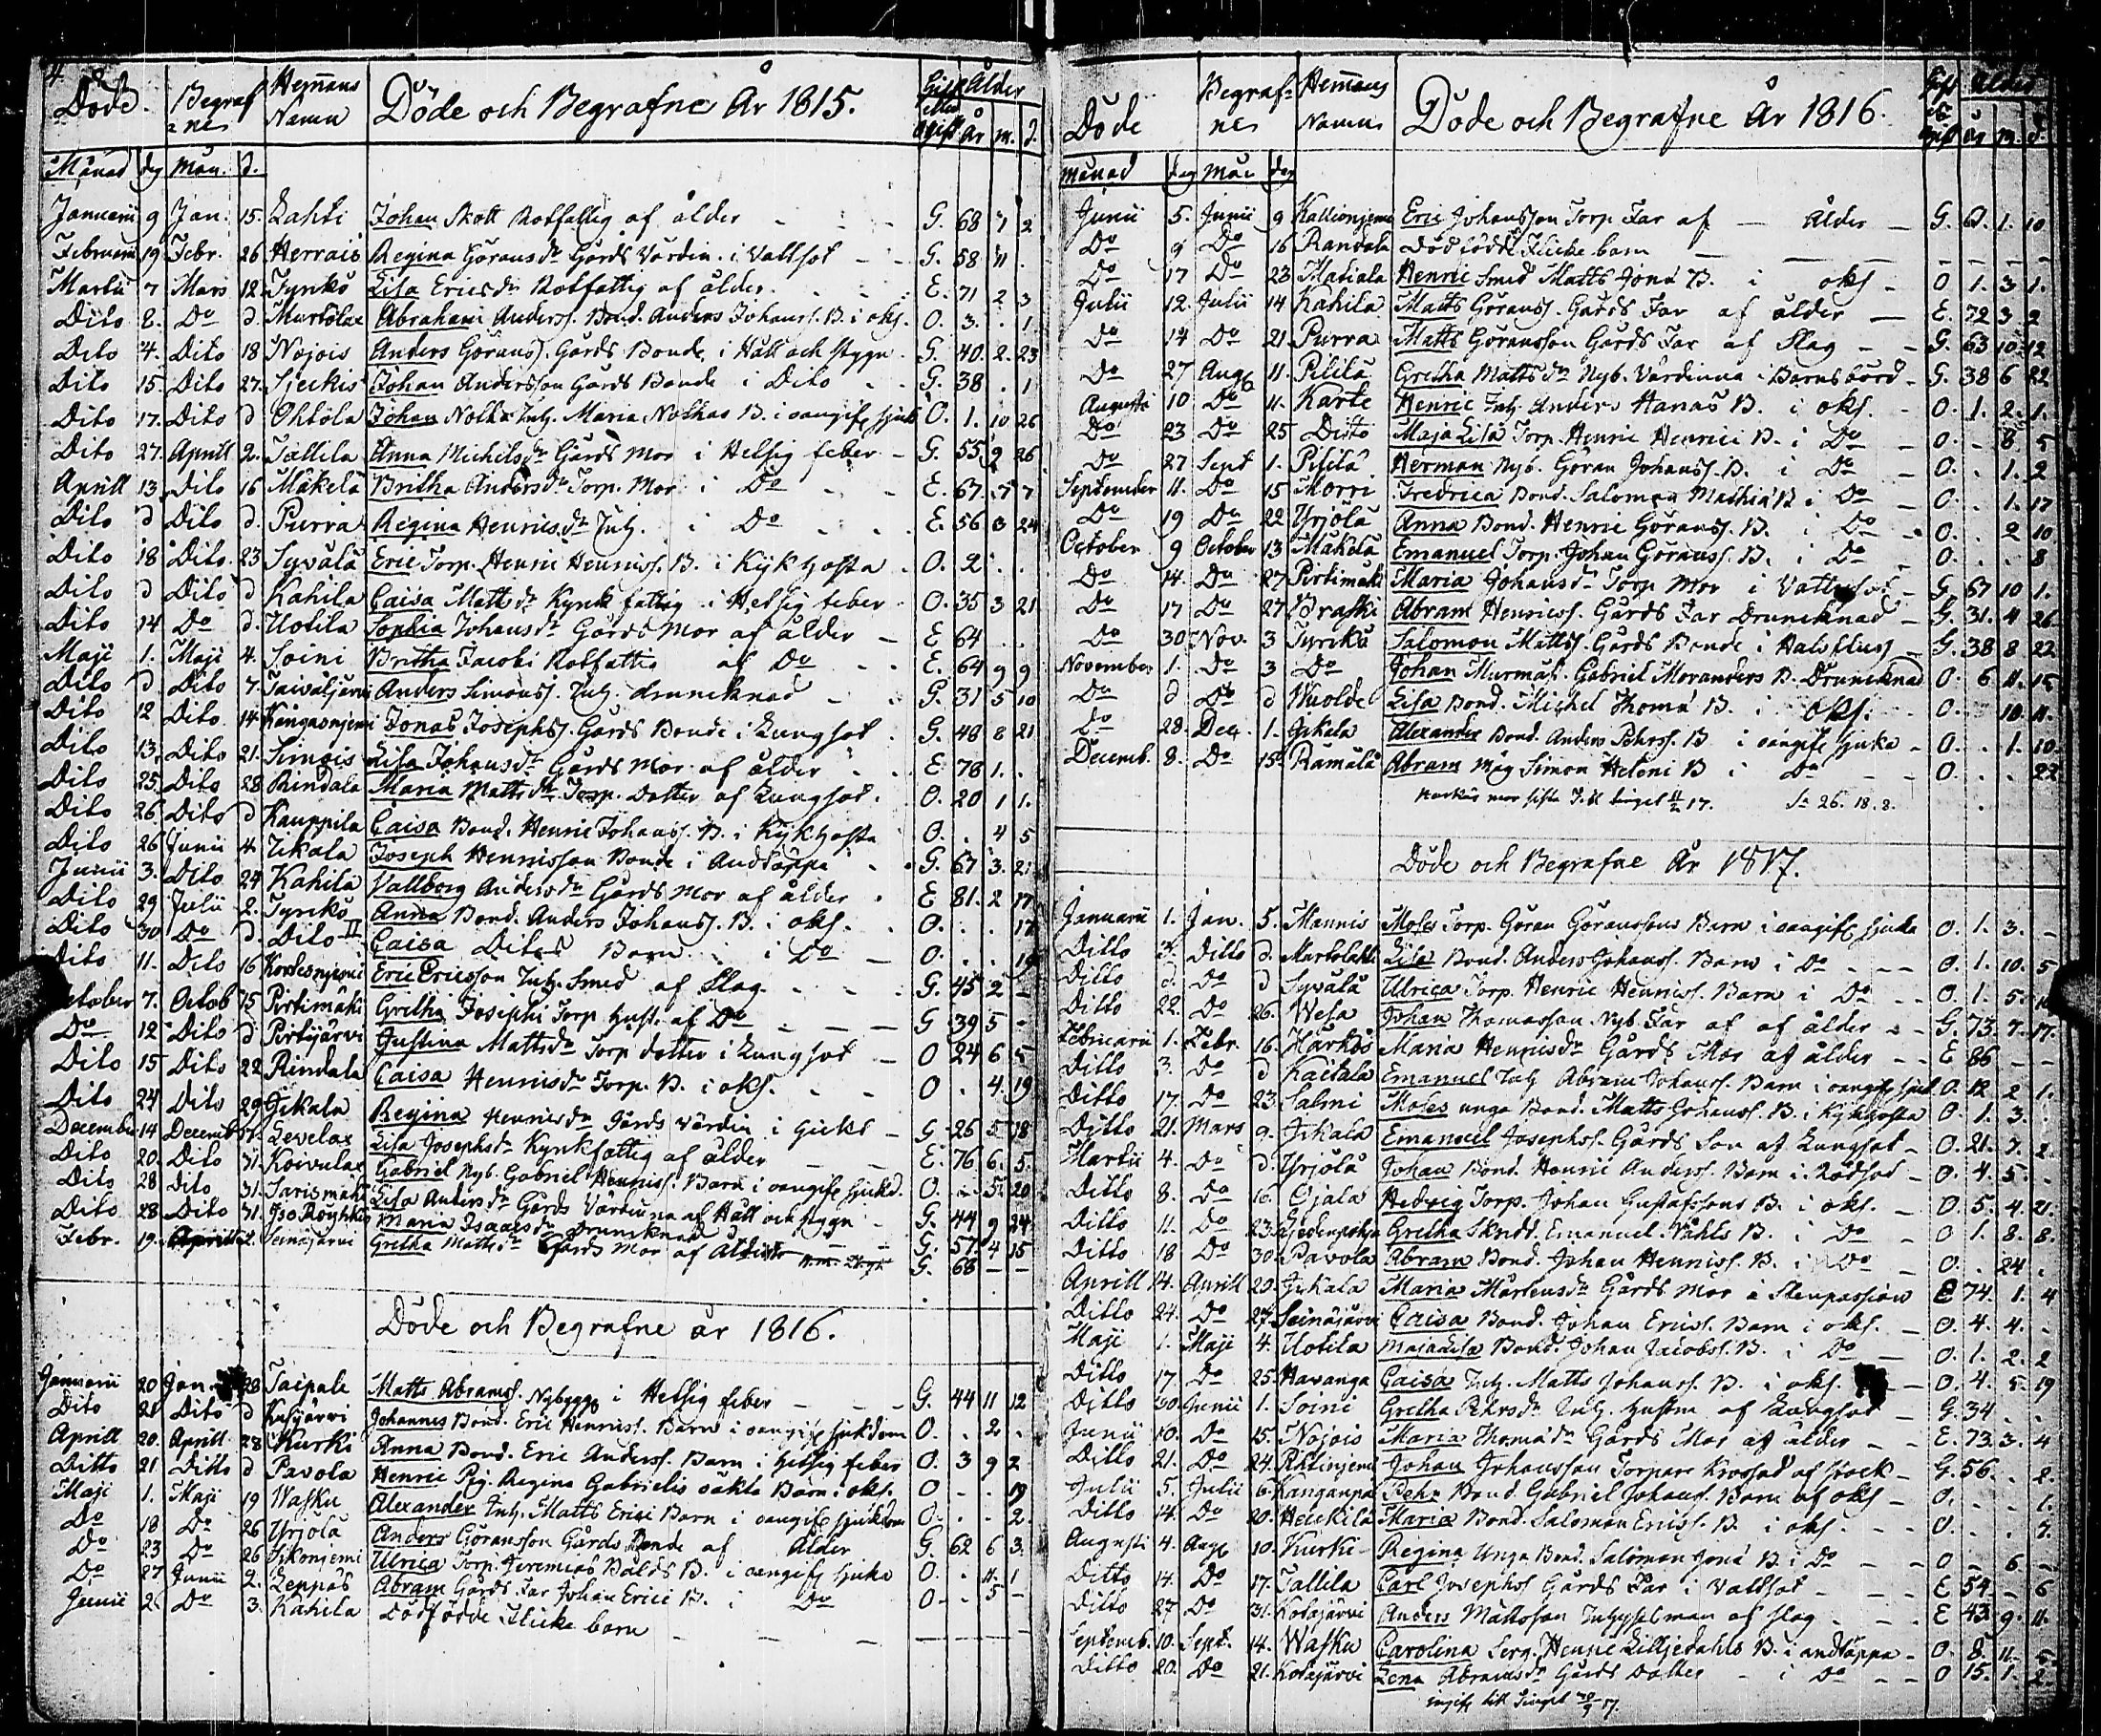 4
Döde. Begraf ne Hemans Namn Döde och Begrafne År 1815. Gift eller ogift Ålder År m. d.
Månad dg Mån. d.
Januarii 9 Jan. 15. Lahti Johan Skott Rotfattig af ålder G. 68 7 2
Februarii 19 Febr. 26 Herrais Regina Göransdr Gårds Värdin. i Vattsot G. 58 11
Martii 7 Mars 12 Tyrikö Lisa Ericsdr Rotfattig af ålder E. 71 2 3
Dito 8. Do d. Murtolax Abraham Anderss. Bond. Anders Johanss. B. i oks. O. 3. . 1
Dito 4. Dito 18 Nojois Anders Göranss. Gårds Bonde i Håll och stygn G. 40. 2. 23
Dito 15. Dito 27. Sjeckis Johan Andersson Gårds Bonde i Dito G. 38 . 1
Dito 17. Dito d Ohtola Johan Nolka Inh. Maria Nolkas B. i oangif. sjuk O. 1. 10 26
Dito 27. Aprill 2. Tallila Anna Michelsdr Gårds Mor i Hetsig feber G. 55 9 26
Aprill 13 Dito 16 Mäkelä Britha Andersdr Torp. Mor i Do E. 67. 5 7
Dito d Dito d. Purra Regina Henricsdr Inh. i Do E. 56 3 24
Dito 18 Dito 23 Syvälä Eric Torp. Henric Henricss. B. i Kikhosta O. 2
Dito d Dito d Kahila Caisa Mattsdr Kyrk fattig i Hetsig feber O. 35 3 21
Dito 14 Do d. Uotila Sophia Johansdr Gårds Mor af ålder E 64
Maji 1. Maji 4. Soini Britha Jacobi Rotfattig af Do E. 64 9 9
Dito d Dito 7. Taivaljärvi Anders Simonss. Inh. drunknad G. 31 5 10
Dito 12 Dito 14 Kangasnjemi Jonas Josephss. Gårds Bonde i Lungsot G. 48 8 21
Dito 13. Dito 21. Simois Lisa Johansdr Gårds Mor af ålder E 78 1.
Dito 25. Dito 28 Rindala Maria Mattsdr Torp. Dotter af Lungsot. O. 20 1 1.
Dito 26. Dito d Kauppila Caisa Bond. Henric Johanss. B. i Kikhosta O. . 4 5
Dito 26 Junii 4. Jikala Joseph Henricsson Bonde i Andtäppa G. 67 3. 21
Junii 3. Dito 24 Kahila Vallborg Andersdr Gårds Mor af ålder E 81. 2 17
Dito 29 Julii 2. Tyrikö Anna Bond. Anders Johanss. B. i oks. O. . . 17
Dito 30 Do d. Dito II Caisa Ditos Barn i Do O. . . 19
Dito 11. Dito 16 Kordesnjemi Eric Ericsson Inh. Smed af Slag G. 45 2
October 7. Octob 15 Pirtimäki Gretha Josephi Torp. hust. af Do G 39 5
Do 12 Dito d Pirttijärvi Justina Mattsdr Torp dotter i Lungsot O 24 6 5
Dito 15 Dito 22 Rindala Caisa Henricsdr Torp. B. i oks. O . 4. 19
Dito 24 Dito 29 Jikala Regina Henricsdr Gårds Värdin i Gickt G. 26 5 18
December 14 Decemb 17. Levelax Lisa Josephsdr Kyrkfattig af ålder E. 76 6. 5.
Dito 20. Dito 31. Koivulax Gabriel Nyb. Gabriel Henricss. Barn i oangif. sjukd. O. . 5. 20
Dito 28 Dito 31. Sarismäki Lisa Andersdr Gårds Värdinna af Håll och stygn G. 44 9 24
Dito 28 Dito 31. Iso Röyhkiö Maria Isaacsdr Drunknad G. 57. 4 15
Febr. 19. Seinäjärvi Gretha Mattsdr Gårds Mor af Ålder G. 68
Döde och Begrafne år 1816.
Januarii 20 Jan. 28 Taipale Matts Abramss. Nybygg. i Hetsig feber G. 44 11 12
Dito 21 Dito d Kusijärvi Johannes Bond. Eric Henricss. Barn i oangif. sjukdom O. . 2.
Aprill 20. Aprill 28 Kurki Anna Bond. Eric Anderss. Barn i Hetsig feber O. 3 9 2
Ditto 21 Ditto d Pavola Henric Pig. Regina Gabrielis oäkta Barn i oks. O . . 19
Maji 1. Maji 19 Wasku Alexander Inh. Matts Erici Barn i oangif. sjukdom O. . . 2.
Do 18 Do 26 Yrjölä Anders Göransson Gårds Bonde af Ålder G. 62 6 3.
Do 23 Do 26 Jikonjemi Ulrica Torp. Jeremias Balds B. i oangif. sjuka O. . 11. 1
Do 27 Junii 2. Leppäs Abram Gårds Far Johan Erici B. i Do O . 5
Junii 2. Do 3. Kahila Dödfödde Flicke barn
Döde Begraf-ne Hemans Namn Döde och Begrafne År 1816. Gift el. ogift Ålder år m. d.
Månad dag Mån dag
Junii 5. Junii 9 Kallionjemi Eric Johansson Torp Far af Ålder G. 61. 1. 10
Do 9 Do 16 Randala Död födde Flicke barn
Do 17 Do 23 Matiala Henric Smed Matts Jona B. i oks. O 1. 3 1.
Julii 12. Julii 14 Kahila Matts Göranss. Gårds Far af ålder E. 72 3 2
Do 14 Do 21 Purra Matts Göransson Gårds Far af Slag G. 63 10 12
Do 27 Aug. 11. Pililä Gretha Mattsdr Nyb. Värdinna i Barnsbörd G. 38 6 22
Augusti 10 Do 11. Karte Henric Inh. Anders Hanas B. i oks. O. 1. 2. 1.
Do 23 Do 25 Ditto Maja Lisa Torp. Henric Henrici B. i Do O. . 8. 5
Do 27 Sept 1. Pililä Herman Nyb. Göran Johanss. B. i Do O. . 1. 2
September 11. Do 15 Morri Fredrica Bond. Salomon Mathiæ B i Do O. . 1. 17
Do 19 Do 22 Yrjölä Anna Bond. Henric Göranss. B. i Do O. . 2 10
October 9 October 13 Mäkelä Emanuel Torp. Johan Göranss. B. i Do O. . . 8
Do 14. Do 27 Pirtimäki Maria Johansdr Torp Mor i Vattusot G. 67 10 1.
Do 17 Do 27 Braski Abram Henricss. Gårds Far Druncknad G. 31. 4 26
Do 30 Nov. 3 Tyrikö Salomon Mattss. Gårds Bonde i Halsfluss G. 38 8 22
November 1. Do 3 Do Johan Murmäst. Gabriel Moranders B. Druncknad O. 6 11. 15
Do d Do d Wuolde Lisa Bond. Michel Thomæ B. i oks. O. . 10. 11.
Do 28. Dec. 1. Jikala Alexander Bond. Anders Pehrss. B i oangif. sjuka O. . 1. 10.
Decemb. 8. Do 15. Rämälä Abram Måg Simon Hetoni B i Do O. . . 22
Sa 26. 18. 8.
Döde och Begrafne År 1817.
Januarii 1. Jan. 5. Mannis Moses Torp. Göran Göranssons Barn i oangif. sjuka O. 1. 3. –
Ditto 3. Ditto d. Murtolahti Lisa Bond. Anders Johanss. Barn i Do O. 1. 10. 5
Ditto d. Do d Syvälä Ulrica Torp. Henric Henricss. Barn i Do O. 1. 5. 16
Ditto 22. Do 26. Wesa Johan Thomasson Nyb. Far af af ålder G. 73. 7. 17.
Februarii 1. Febr. 16. Harkös Maria Henricsdr Gårds Mor af ålder E 86
Ditto 3. Do d Kaitala Emanuel Inh. Abram Johanss. Barn i oangif. sjuk O. 12 2 1.
Ditto 17. Do 23. Salmi Moses unga Bond. Matts Johanss. B. i Kikhosta O. 1. 3.
Ditto 21. Mars 9. Jikala Emanuel Josephss. Gårds Son af Lungsot O. 21. 7. 2
Martii 4. Do d. Yrjölä Johan Bond. Henric Anderss. Barn i Rödsot O. 4. 5.
Ditto 8. Do 16. Ojala Hedvig Torp. Johan Gustafssons B. i oks. O. 5. 4 21
Ditto 11. Do 23. Gretha Skrädd. Emanuel Våhls B. i Do O 1. 8. 8.
Ditto 18 Do 30 Pavola Abram Bond. Johan Henricss. B. i Do O. . 24.
Aprill 14. Aprill 20. Jikala Maria Mårtensdr Gårds Mor i Stenpassion E 74. 1. 4
Ditto 24. Do 27. Seinäjärvi Caisa Bond. Johan Ericss. Barn i oks. O. 4. 4.
Maji 1. Maji 4. Uotila Maja Lisa Bond. Johan Jacobss. B. i Do O. 1. 2. 2
Ditto 17. Do 25. Havanga Caisa Inh. Matts Johanss. B. i oks. O. 4. 5. 19
Ditto 30. Junii 1. Soini Gretha Pehrsdr Inh. Hustru af Lungsot G. 34
Junii 10. Do 15. Nojois Maria Thomædr Gårds Mor af ålder E. 73. 3. 4
Ditto 21. Do 24. Johan Johansson Torpare Krossad af stock G. 56. . 2.
Julii 5. Julii 6. Kanganpä Pehr Bond. Gabriel Johanss. Barn af oks O. . . 1.
Ditto 14. Do 20. Heickilä Maria Bond. Salomon Ericss. B. i oks. O. . . 7.
Augusti 4. Aug. 10. Kurki Regina Unga Bond. Salomon Jonæ B. i Do O . 6
Ditto 14. Do 17. Tallila Carl Josephss Gårds Far i Vattsot E 54. 6
Ditto 27 Do 31. Kotajärvi Anders Mattsson Inhyselman af slag E 43. 9. 11.
Septemb. 10. Sept. 14. Wasku Carolina Serg. Henric Lilljedahls B. i andtäppa O. 8. 11. 5.
Ditto 20. Do 21. Kotajärvi Lena Abramsdr Gårds Dotter i Do O 15. 1. 2